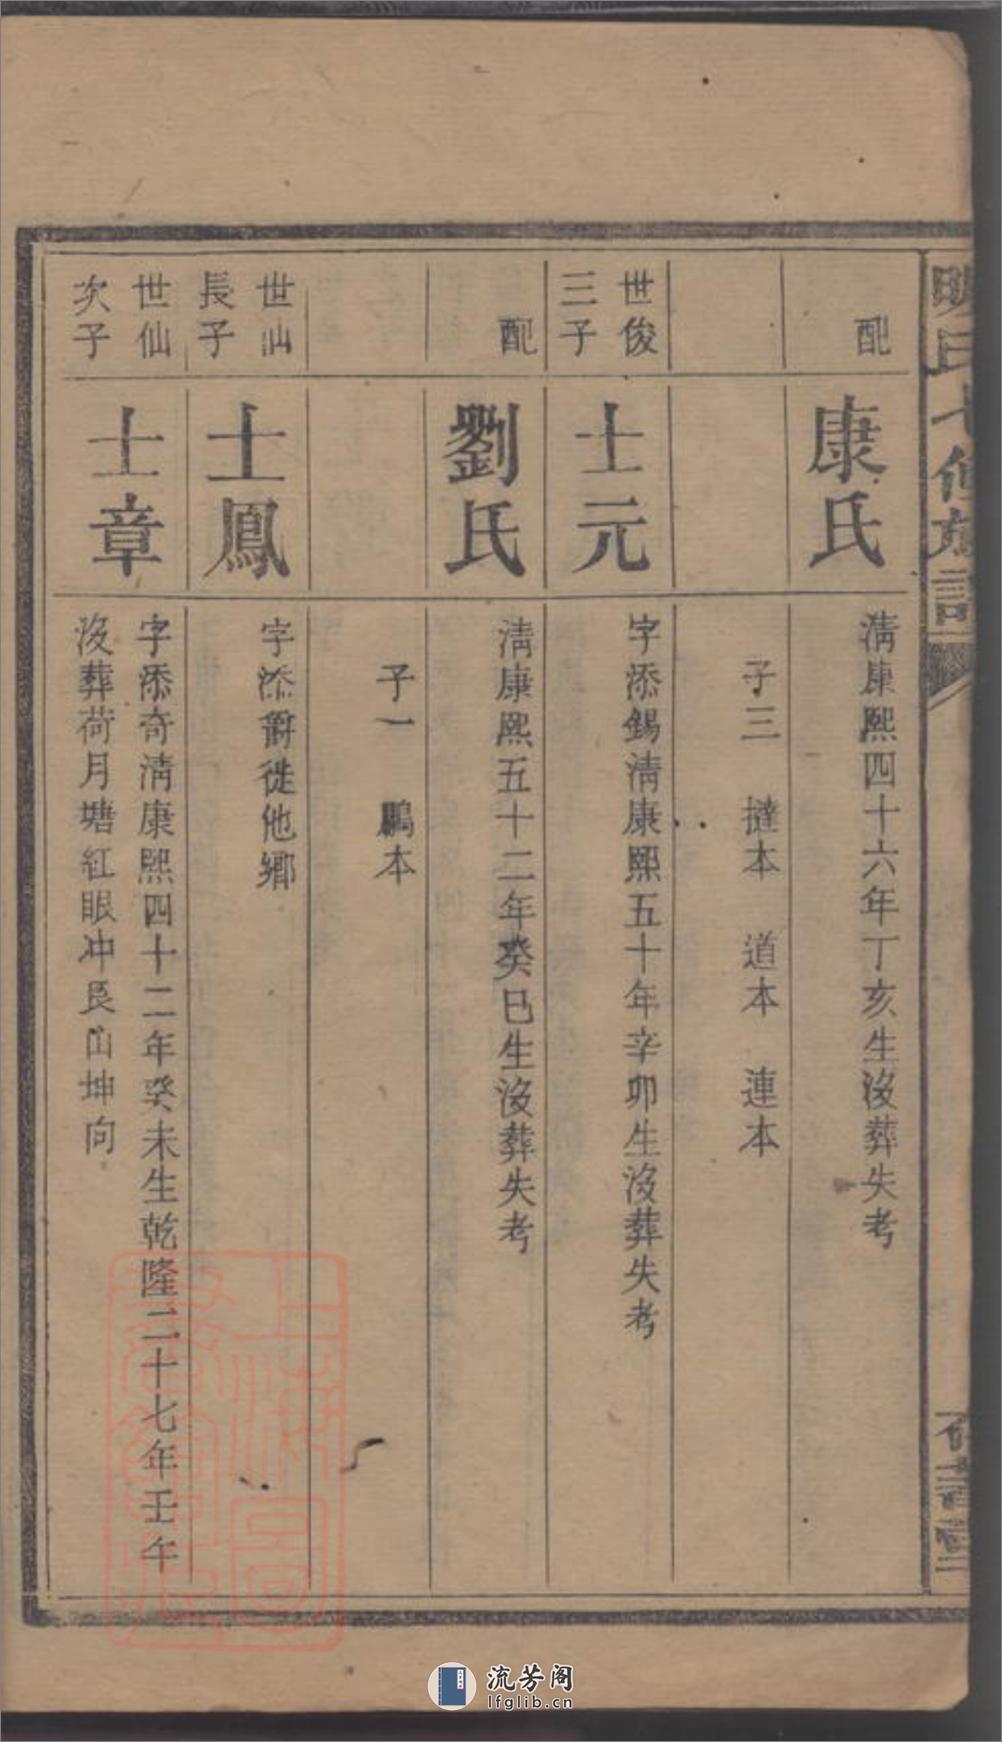 配
康氏
淸康熙四十六年丁亥生沒葬失考
子三　撻本　道本　連本
世俊
三子
士元
字添錫淸康熙五十年辛卯生沒葬失考
配
劉氏
淸康熙五十二年癸巳生沒葬失考
子一　鵬本
世仙
長子
士鳳
字添爵徙他鄉
世仙
次子
士章
字添奇淸康熙四十二年癸未生乾隆二十七年壬午
沒葬荷月塘紅眼冲艮山坤向
氏七修族譜
上海圖書館藏
流芳阁
lfglib.cn